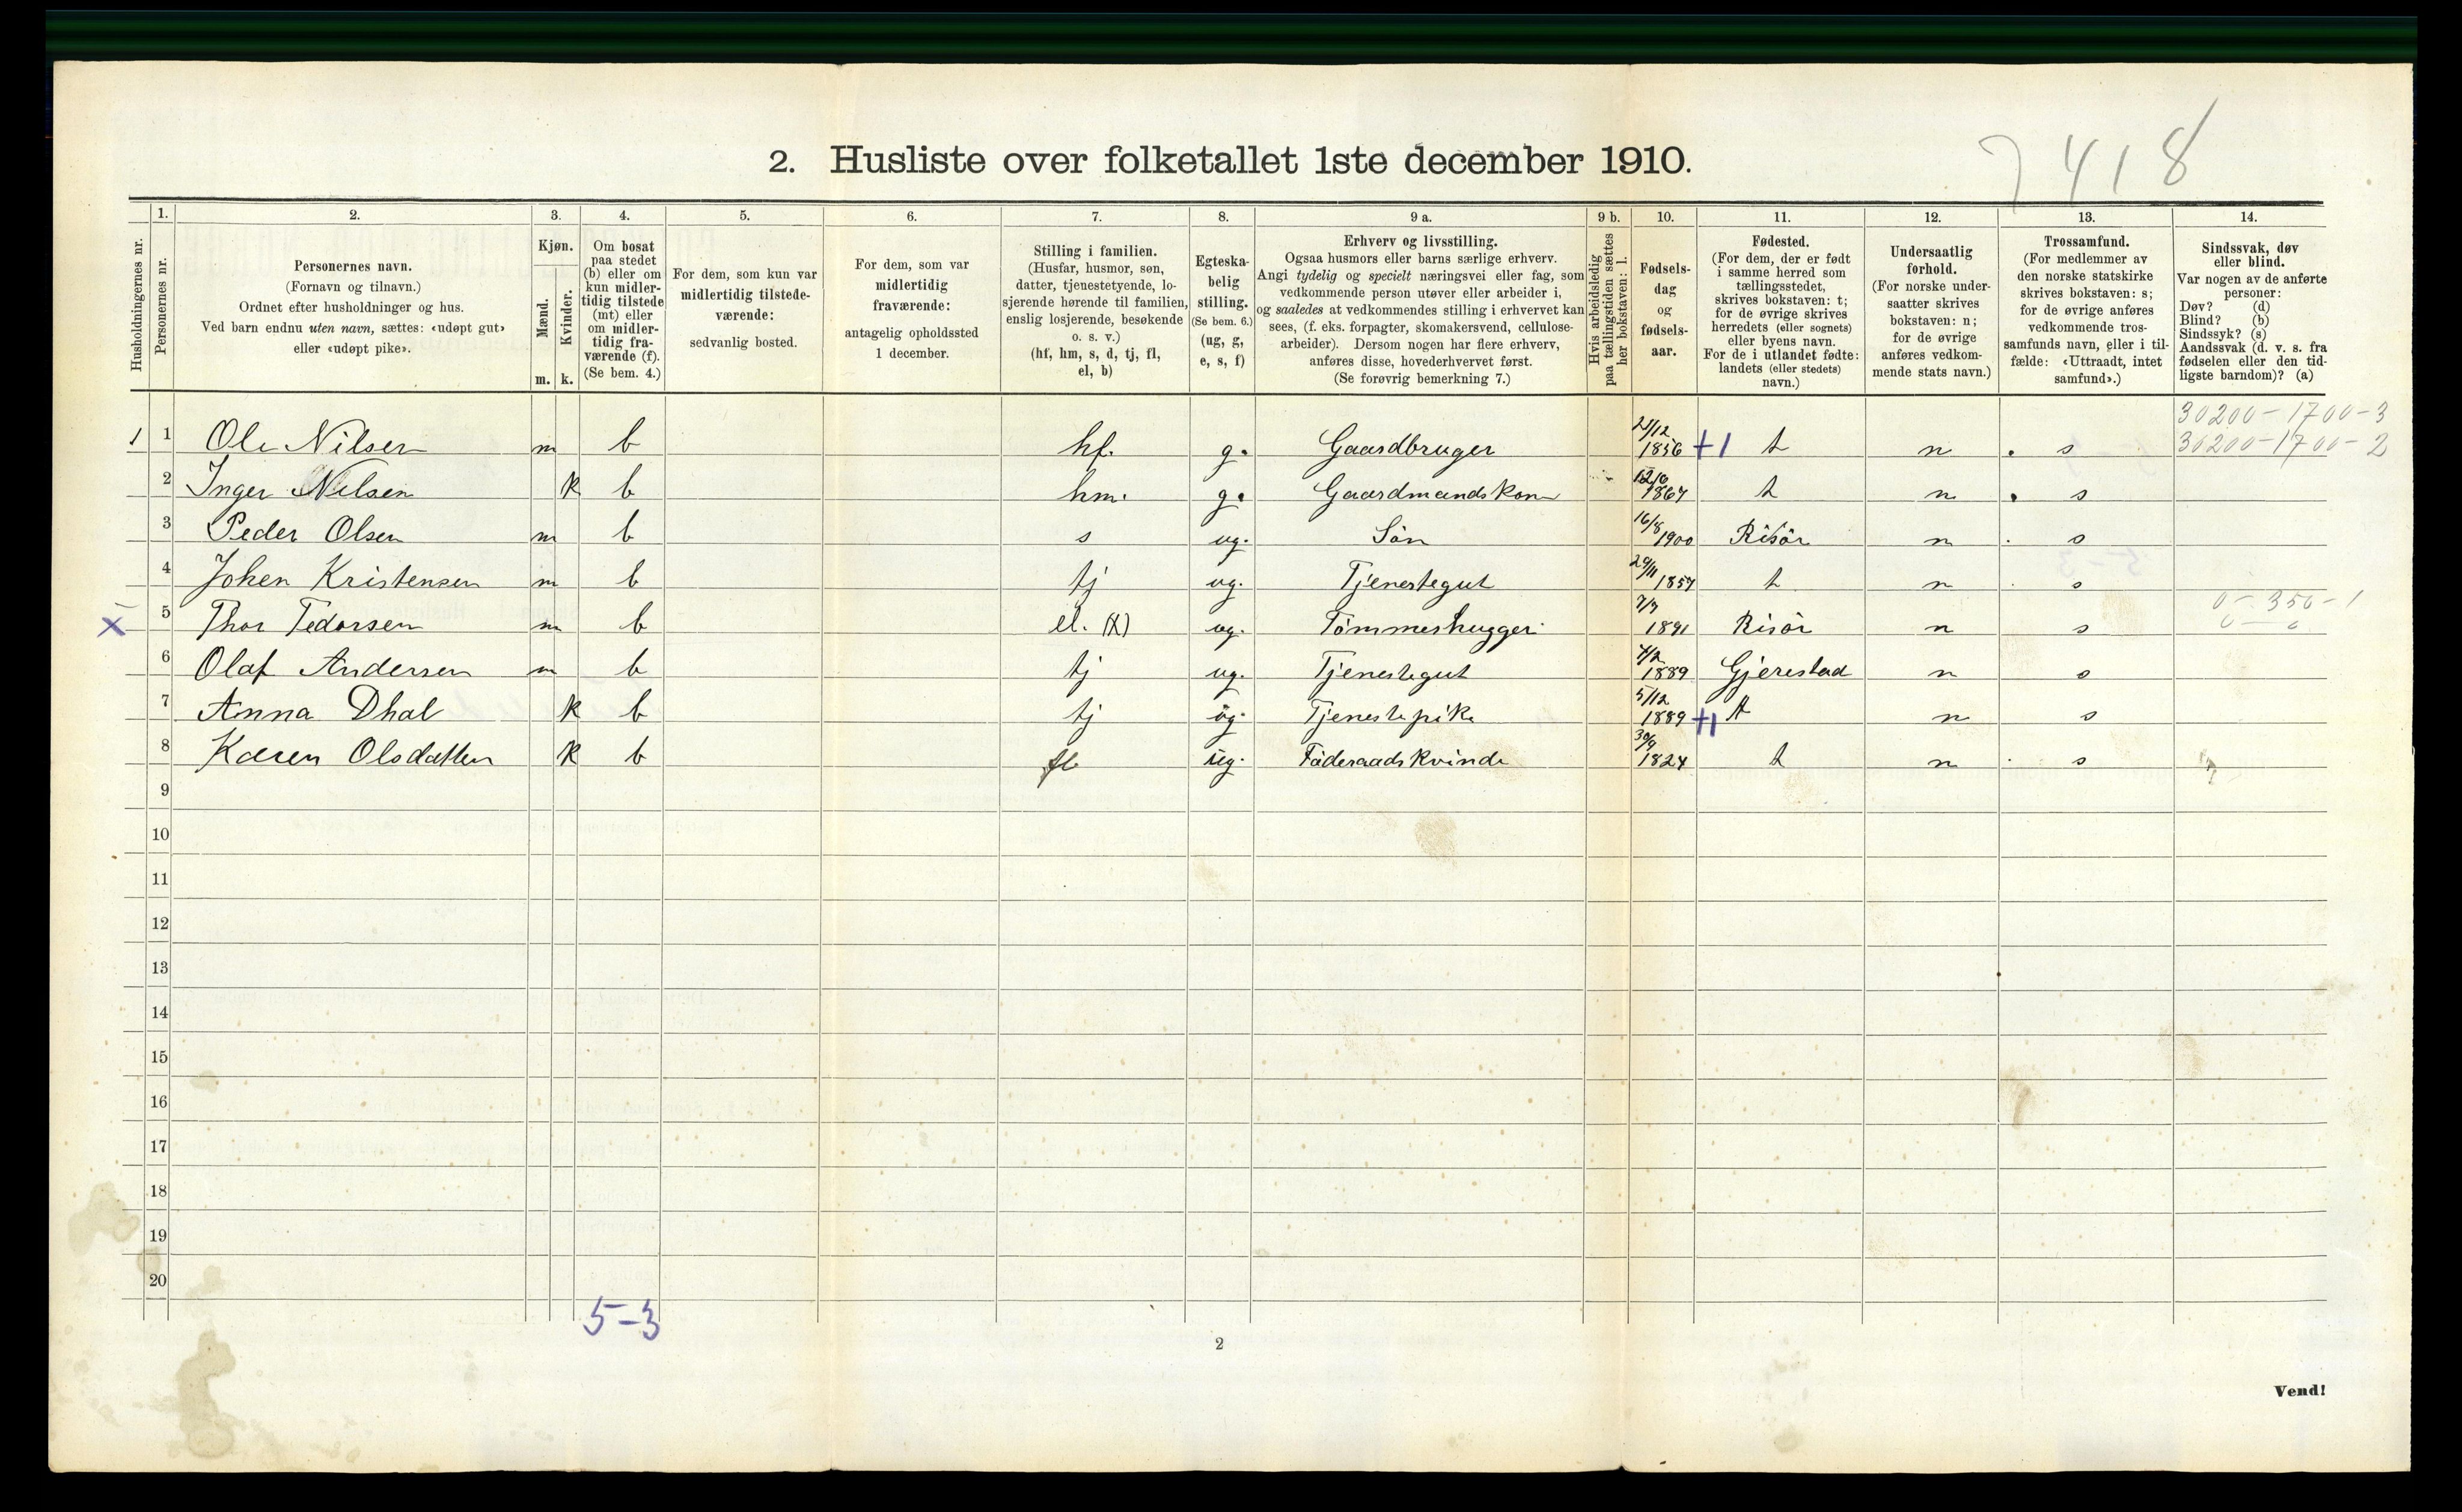 7418
2. Husliste over folketallet 1ste december 1910.
Husholdningernes nr.
1. Personernes nr.
2. Personernes navn. (Fornavn og tilnavn.) Ordnet efter husholdninger og hus. Ved barn endnu uten navn, sættes: «udøpt gut» eller «udøpt pike».
3. Kjøn. Mænd. m. Kvinder. k.
4. Om bosat paa stedet (b) eller om kun midler-tidig tilstede (mt) eller om midler-tidig fra-værende (f). (Se bem. 4.)
5. For dem, som kun var midlertidig tilstede-værende: sedvanlig bosted.
6. For dem, som var midlertidig fraværende: antagelig opholdssted 1 december.
7. Stilling i familien. (Husfar, husmor, søn, datter, tjenestetyende, lo-sjerende hørende til familien, enslig losjerende, besøkende o. s. v.) (hf, hm, s, d, tj, fl, el, b)
8. Egteska-belig stilling. (Se bem. 6.) (ug, g, e, s, f)
9 a. Erhverv og livsstilling. Ogsaa husmors eller barns særlige erhverv. Angi tydelig og specielt næringsvei eller fag, som vedkommende person utøver eller arbeider i, og saaledes at vedkommendes stilling i erhvervet kan sees, (f. eks. forpagter, skomakersvend, cellulose-arbeider). Dersom nogen har flere erhverv, anføres disse, hovederhvervet først. (Se forøvrig bemerkning 7.)
9 b. Hvis arbeidsledig paa tællingstiden sættes her bokstaven: l.
10. Fødsels-dag og fødsels-aar.
11. Fødested. (For dem, der er født i samme herred som tællingsstedet, skrives bokstaven: t; for de øvrige skrives herredets (eller sognets) eller byens navn. For de i utlandet fødte: landets (eller stedets) navn.)
12. Undersaatlig forhold. (For norske under-saatter skrives bokstaven: n; for de øvrige anføres vedkom-mende stats navn.)
13. Trossamfund. (For medlemmer av den norske statskirke skrives bokstaven: s; for de øvrige anføres vedkommende tros-samfunds navn, eller i til-fælde: «Uttraadt, intet samfund».)
14. Sindssvak, døv eller blind. Var nogen av de anførte personer: Døv? (d) Blind? (b) Sindssyk? (s) Aandssvak (d. v. s. fra fødselen eller den tid-ligste barndom)? (a)
30200-1700-3
1 1 Ole Nilsen m b hf. g. Gaardbruger 21/12 1856 +1 t n s 30200-1700-2
2 Inger Nilsen k b hm. g. Gaardmandskone 12/6 1867 t n s
3 Peder Olsen m b s ug. Søn 16/8 1900 Risør n s
4 Johen Kristensen m b tj ug. Tjenestegut 29/11 1857 t n s
X 5 Thor Tedorsen m b el. (X) ug. Tømmerhugger 7/7 1891 Risør n s 0-350-1
6 Olaf Andersen m b tj ug. Tjenestegut 4/2 1889 Gjerestad n s
7 Anna Dhal k b tj ug. Tjenestepike 5/12 1889 +1 t n s
8 Karen Olsdatter k b fl ug. Føderaadskvinde 30/9 1824 t n s
9
10
11
12
13
14
15
16
17
18
19
20
5-3
2
Vend!